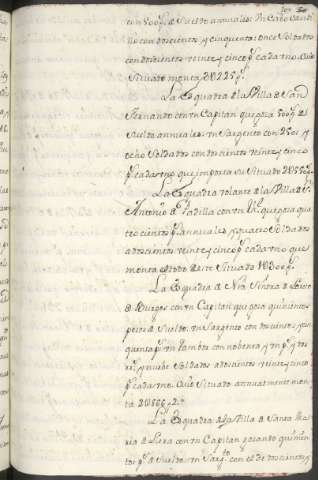 con 500 p.s de Sueldo annuales: Un Cabo Cavdi
llo con doscientos, y cinquenta: once Soldados
con doscientos veinte, y cinco p.s cada uno. Cuio
Situado monta 3U225 p.s
La Esquadra de la Villa de San
Fernando con vn Capitan que goza 500 p.s de
Sueldo annuales: vn Sargento con 250 p.s y
ocho Soldados con doscientos veinte, y cinco
p.s cada uno que importa su Situado 2U550 p.s
La Esquadra volante de la Villa de S.n
Antonio de Padilla con vn que goza qua
trocientos p.s annuales, y quatro Soldados
a doscientos veinte, y cinco p.s cada uno que
monta el todo de este Situado 1U300 p.s
La Esquadra de Nra Señora de Loreto
de Burgos con vn Capitan que goza quinientos
pesos de Sueldo: vn Sargento con doscientos, y cin
quenta p.s vn tambor con noventa, y vn p.s y dos
r.s y nueve Soldados a doscientos veinte, y cinco
p.s cada uno. Cuio Situado annualmente mon
ta 2U866 p.s 2 r.s
La Esquadra de la Villa de Santa Ma
ria de Llera con vn Capitan gozando quinien
tos p.s de Sueldo: vn Sarg.to con el de doscientos, y